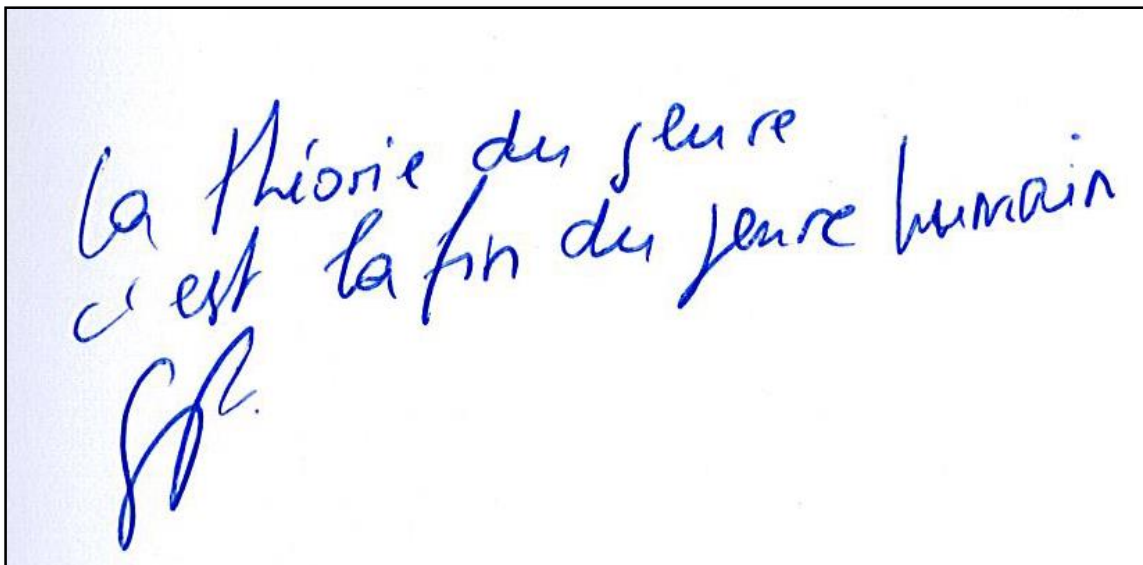 la théorie du genre
c'est la fin du genre humain